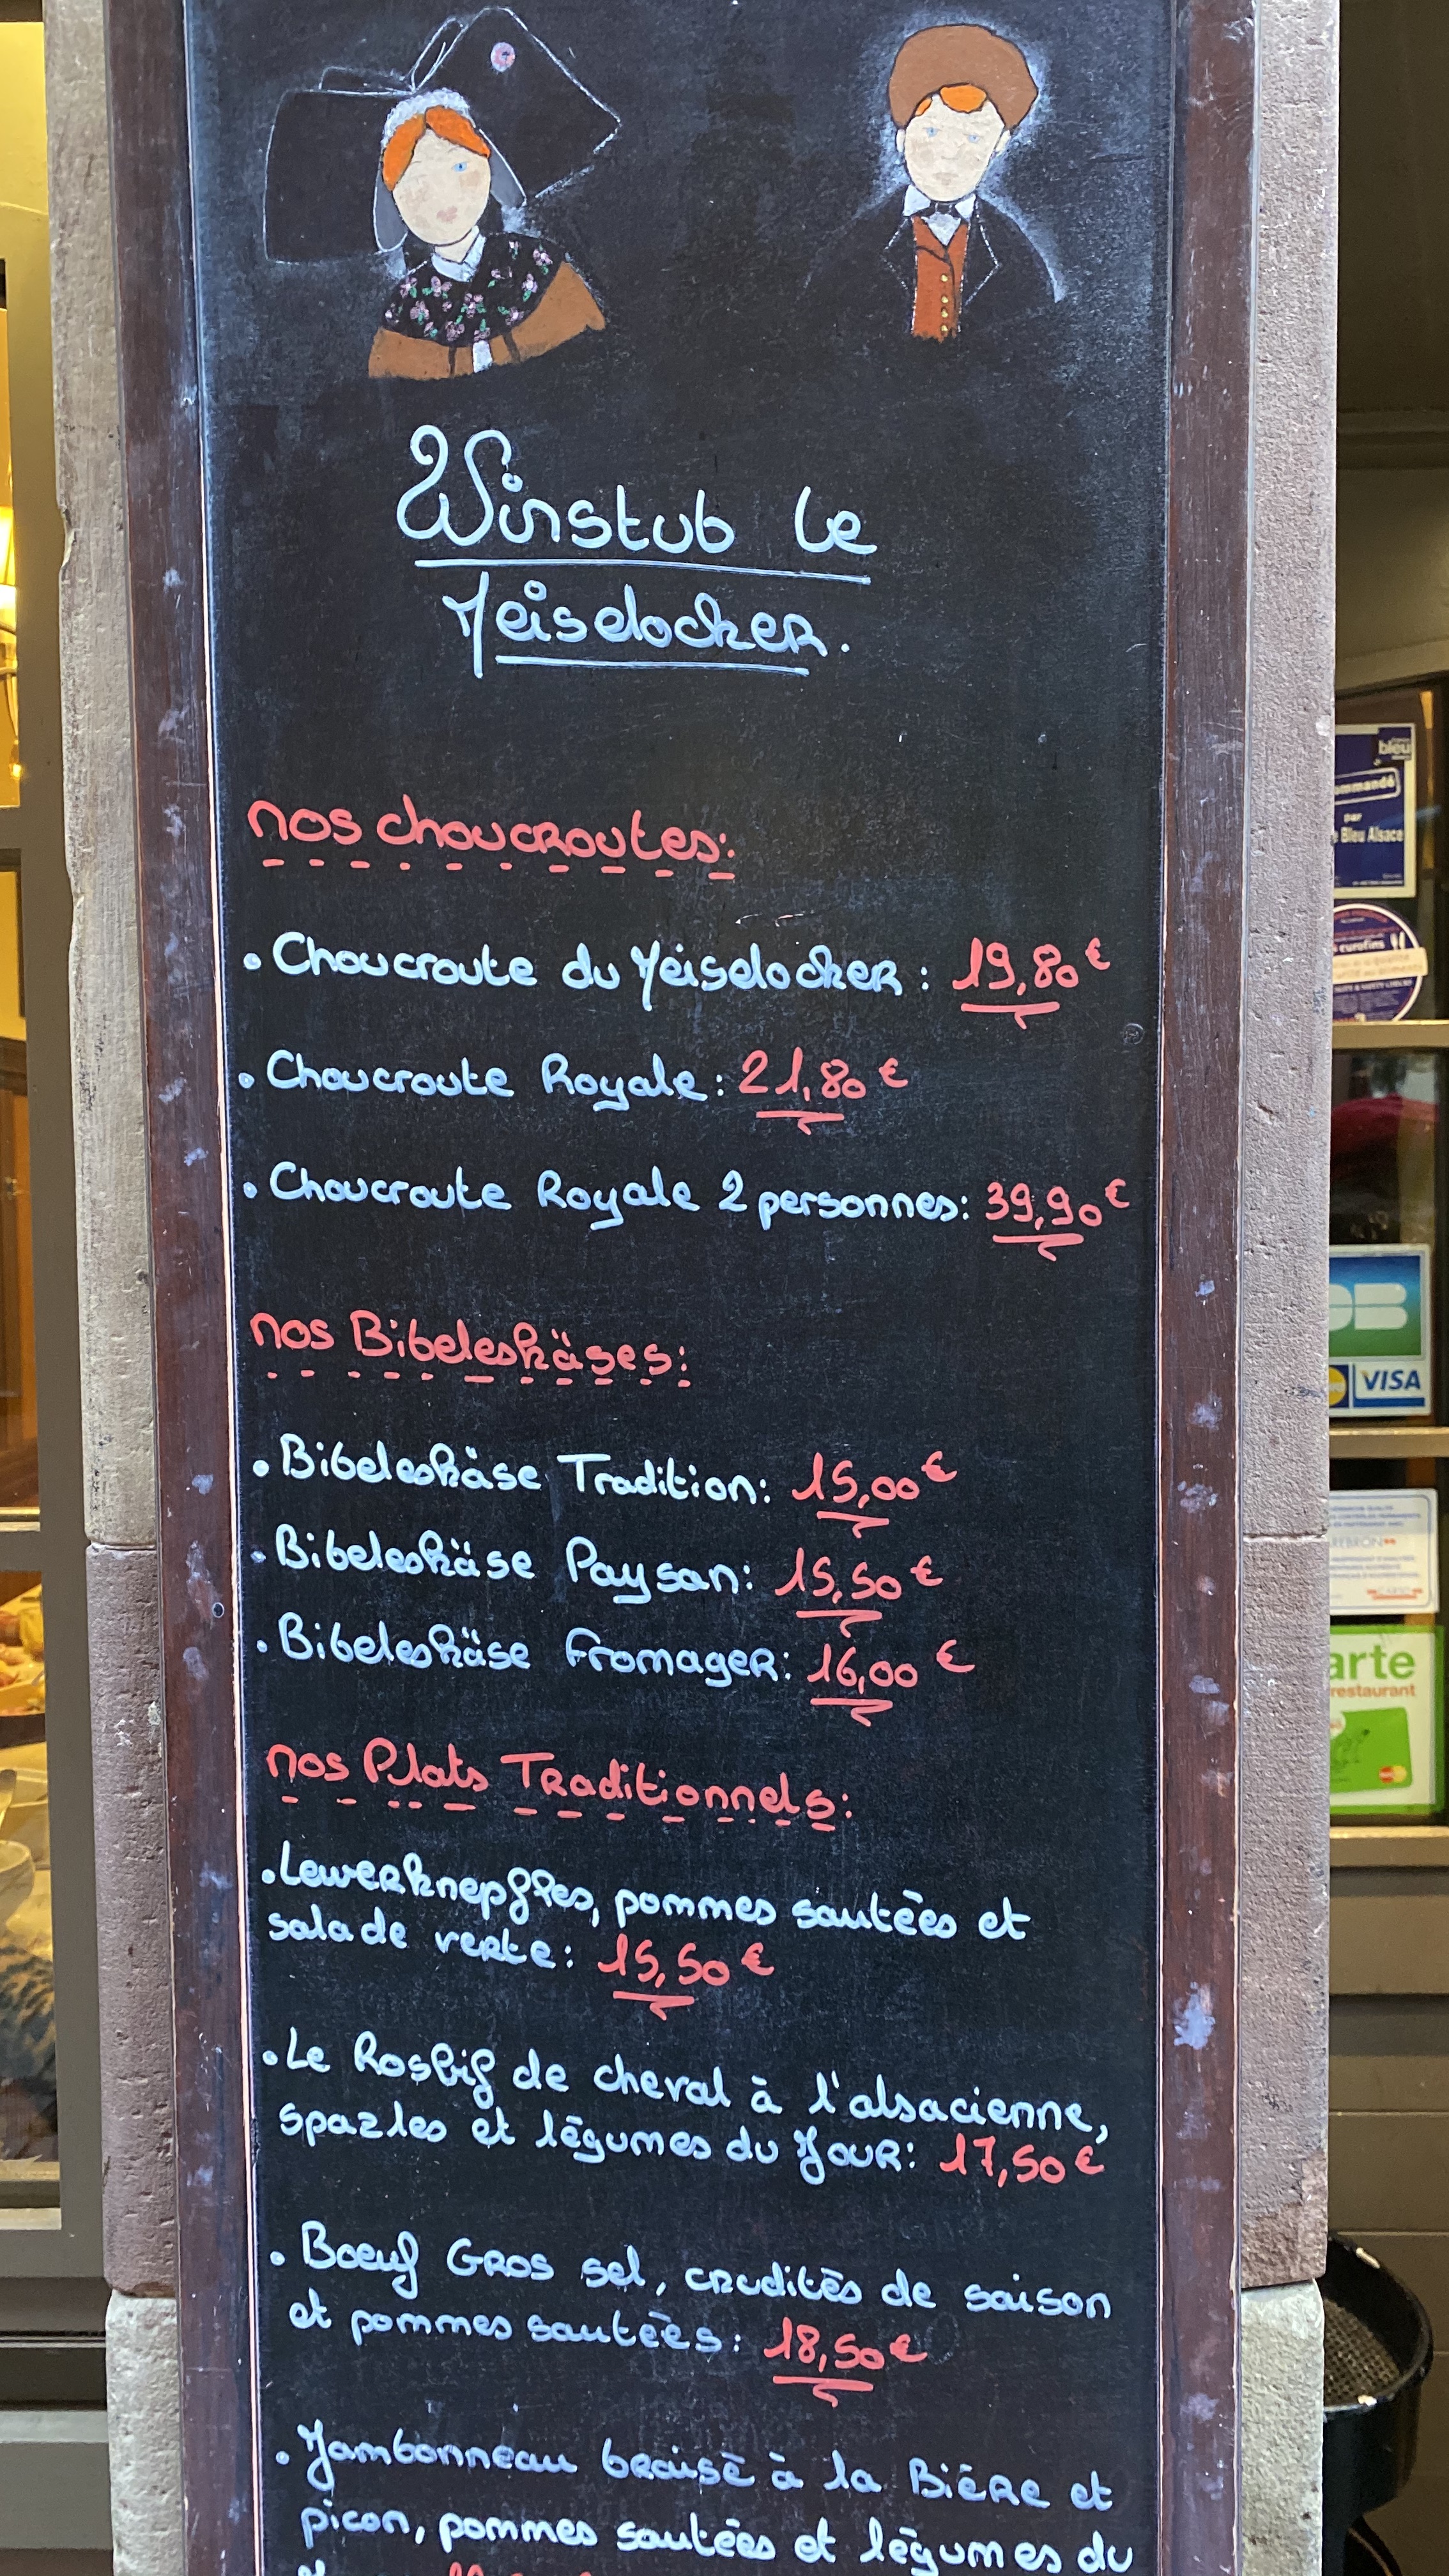 Winstub le
Yeiselocker.
nos choucroutes:
• Choucroute du Yeiselocker : 19,80 €
• Choucroute Royale : 21,80 €
• Choucroute Royale 2 personnes : 39,90 €
nos Bibeleskäses :
• Bibeleskäse Tradition : 15,00 €
• Bibeleskäse Paysan : 15,50 €
• Bibeleskäse Fromager : 16,00 €
nos Plats Traditionnels :
• Lewerknepfles, pommes sautées et
salade verte : 15,50 €
• Le Rosbif de cheval à l'alsacienne,
spazles et légumes du Jour : 17,50 €
• Boeuf Gros sel, crudités de saison
et pommes sautées : 18,50 €
• Jambonneau braisé à la Bière et
picon, pommes sautées et légumes du
bleu
par
Bleu Alsace
eurofins
CB
VISA
restaurant